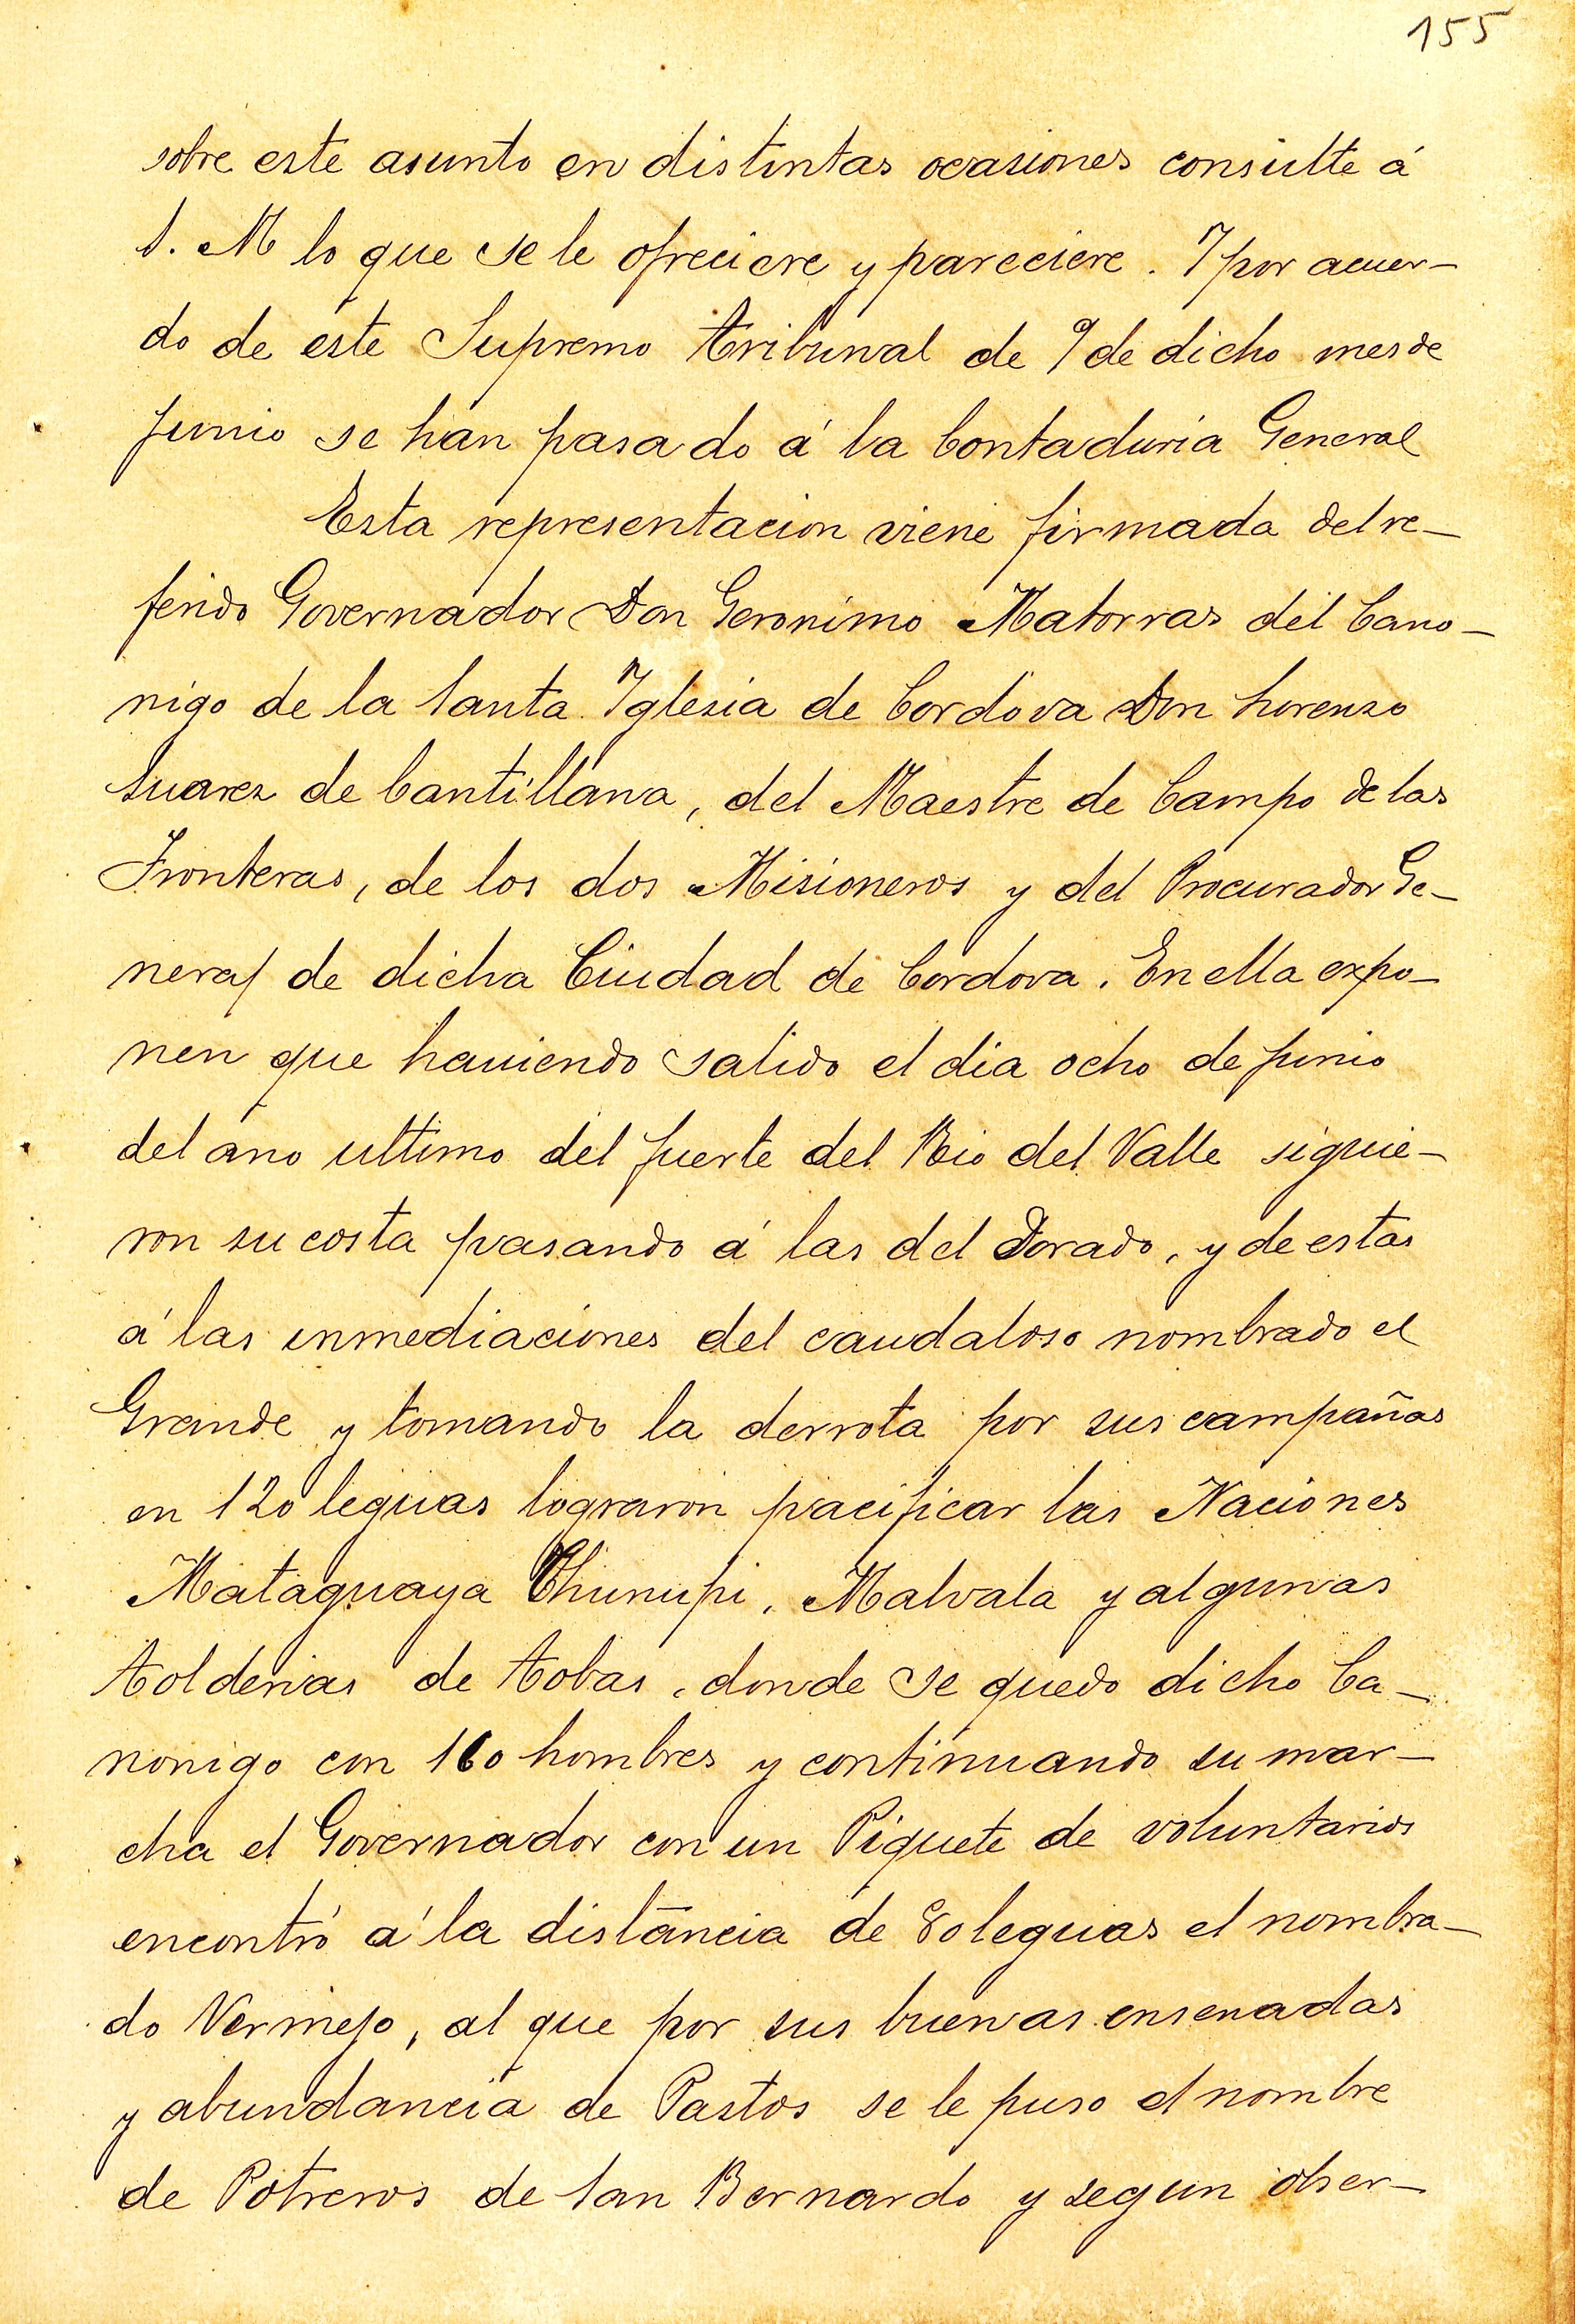 155
sobre este asunto en distintas ocasiones consulte á
S. M lo que se le ofreciere y pareciere. Y por acuer-
do de este Supremo Tribunal de 9 de dicho mes de
junio se han pasado á la Contaduria General
Esta representacion viene firmada del re-
ferido Governador Don Geronimo Matorras del Cano-
nigo de la Santa Iglesia de Cordova Don Lorenzo
Suarez de Cantillana, del Maestre de Campo de las
Fronteras, de los dos Misioneros y del Procurador Ge-
neral de dicha Ciudad de Cordova. En ella expo-
nen que haviendo salido el dia ocho de junio
del ano ultimo del fuerte del Rio del Valle siguie-
ron su costa pasando á las del Dorado, y de estas
á las inmediaciones del caudaloso nombrado el
Grande y tomando la derrota por sus campañas
en 120 leguas lograron pacificar las Naciones
Mataguaya Chunupi, Malvala y algunas
Tolderias de Tobas, donde se quedo dicho Ca-
nonigo con 160 hombres y continuando su mar-
cha el Governador con un Piquete de voluntarios
encontró á la distancia de 80 leguas el nombra-
do Vermejo, al que por sus buenas ensenadas
y abundancia de Pastos se le puso el nombre
de Potreros de San Bernardo y segun obser-